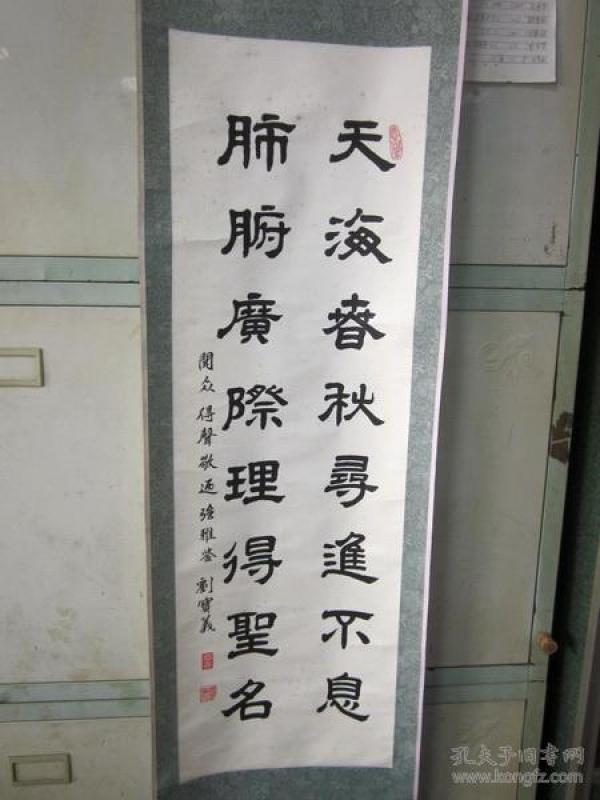 天海春秋尋進不息
肺腑廣際理得聖名
閱众得聲敬迊強雅鉴 劉寶義
孔夫子旧书网
www.kongfz.com